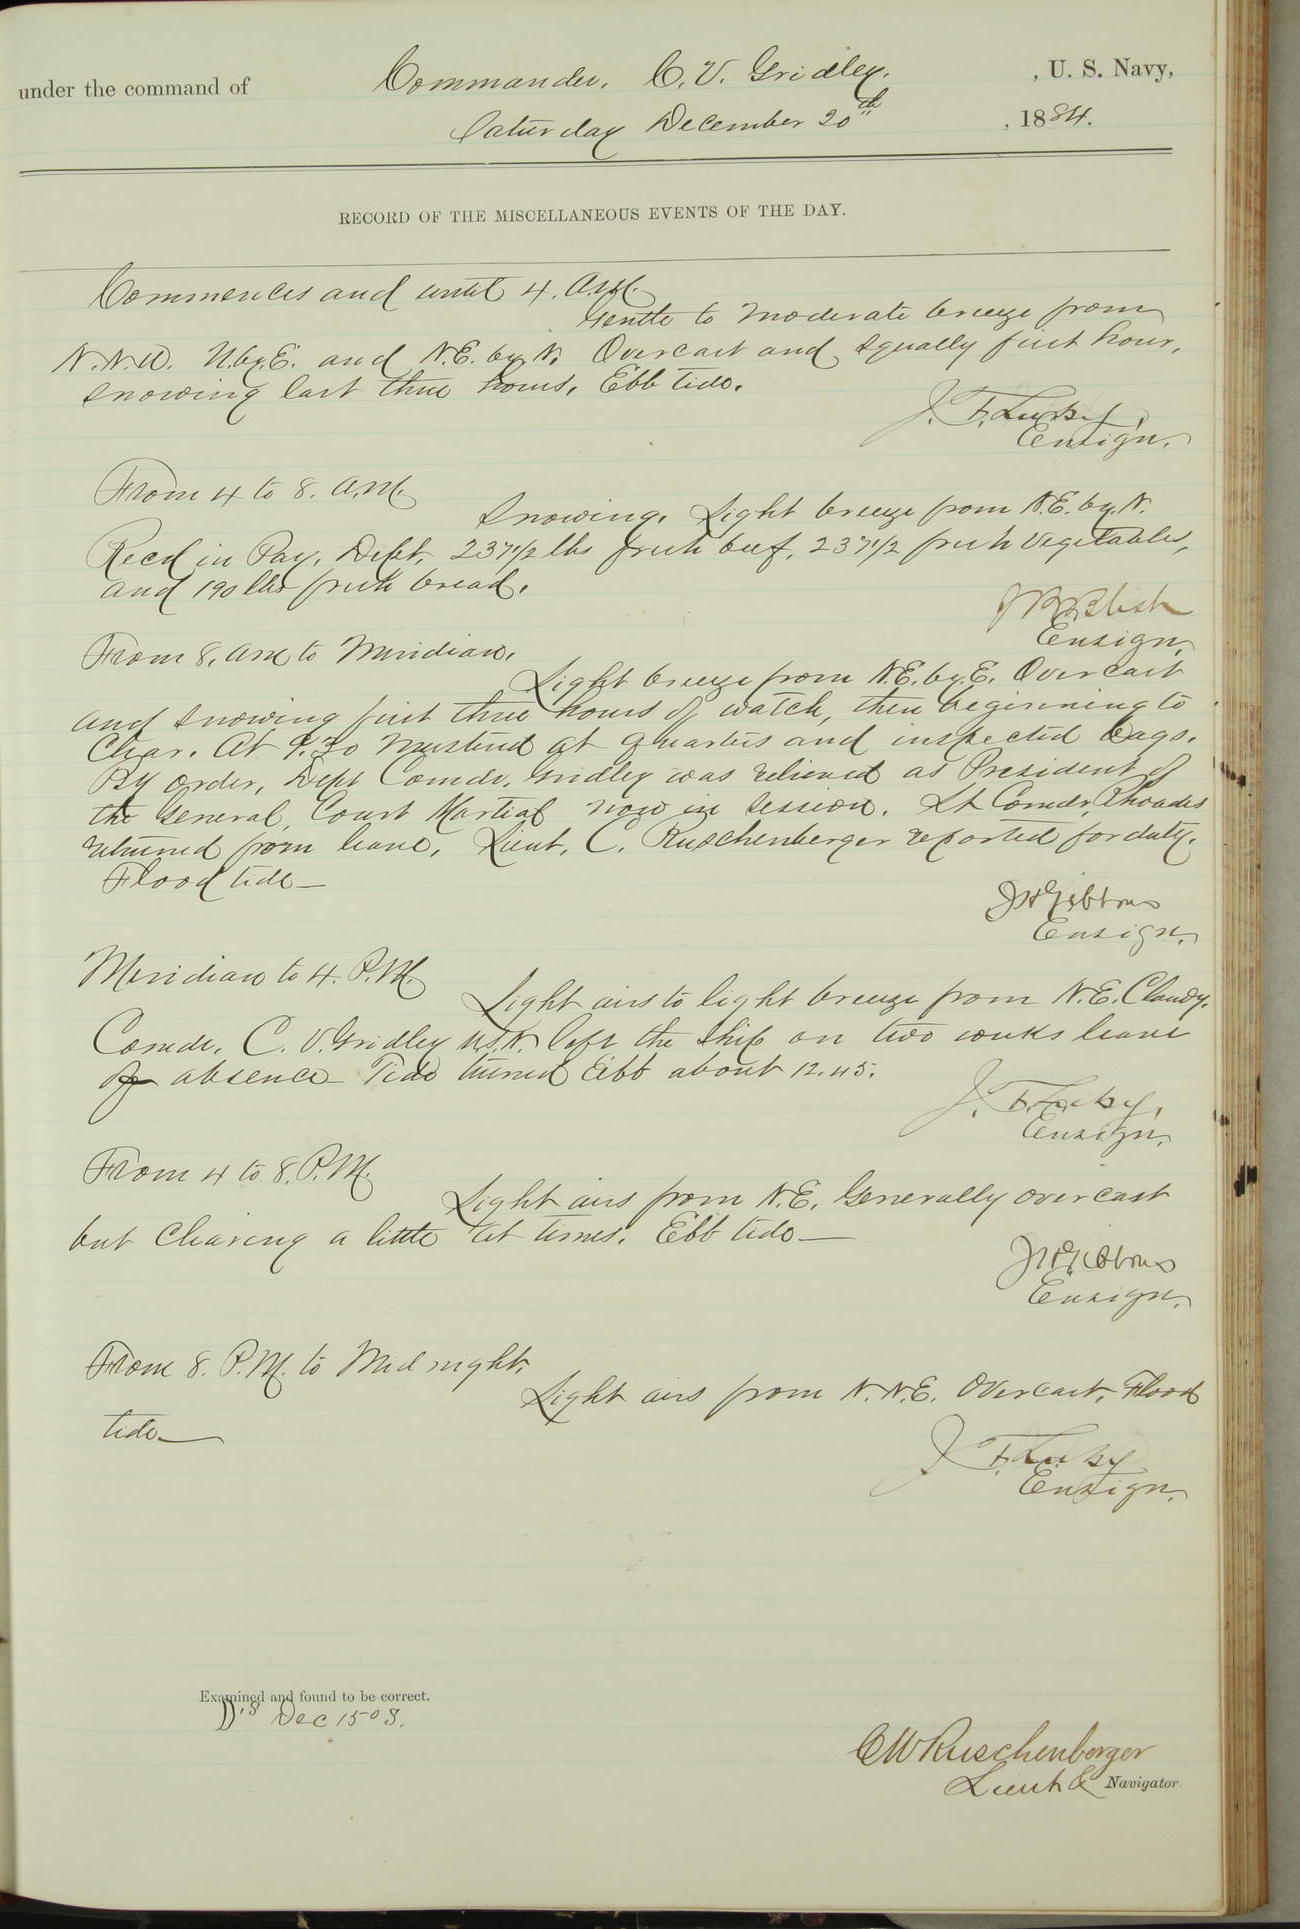 under the command of Commander. C. V. Gridley. , U. S. Navy,
Saturday December 20th , 1884.
RECORD OF THE MISCELLANEOUS EVENTS OF THE DAY.
Commences and until 4. A.M.
Gentle to moderate breeze from
N.N.W. N.by.E. and N.E. by N. Overcast and squally first hour,
snowing last three hours. Ebb tide.
J. F. Luby,
Ensign.
From 4 to 8. A.M.
Snowing. Light breeze from N.E. by N.
Recd in Pay. Dept. 237 1/2 lbs fresh beef, 237 1/2 fresh vegetables,
and 190 lbs fresh bread.
J B Blish
Ensign.
From 8. AM to Meridian.
Light breeze from N.E. by. E. Overcast
and snowing first three hours of watch, then beginning to
clear. At 9.30 mustered at quarters and inspected bags.
By order, Dept Comdr. Gridley was relieved as President of
the General Court Martial now in session. Lt Comdr. Rhoades
returned from leave. Lieut. C. Ruschenberger reported for duty.
Flood tide—
J H Gibbons
Ensign.
Meridian to 4. P.M.
Light airs to light breeze from N.E. Cloudy.
Comdr. C. V. Gridley U.S.N. left the ship on two weeks leave
of absence— Tide turned Ebb about 12.45.
J. F. Luby,
Ensign.
From 4 to 8. P.M.
Light airs from N.E. Generally overcast
but clearing a little at times. Ebb tide—
J H Gibbons
Ensign.
From 8. P.M. to Midnight.
Light airs from N.N.E. Overcast. Flood
tide—
J. F. Luby
Ensign.
Examined and found to be correct.
Dec 1508.
C W Ruschenberger
Lieut & Navigator.